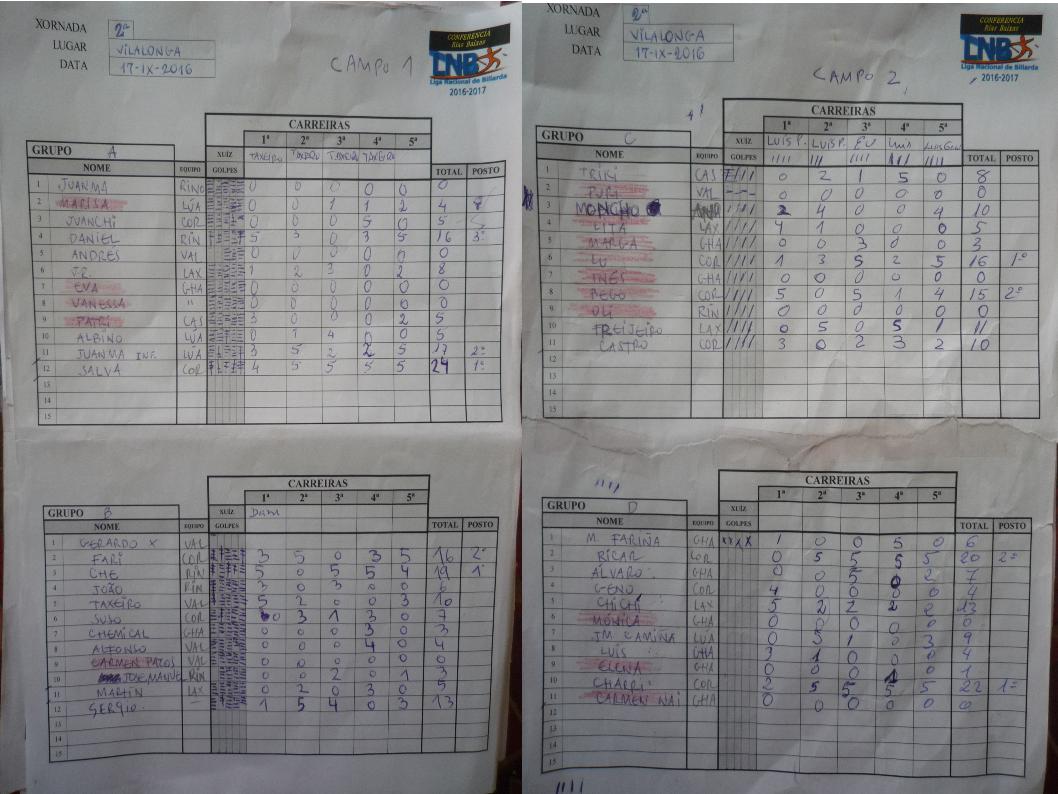 XORNADA 2ª
LUGAR VILALONGA
DATA 17-IX-2016
CAMPO 1
CONFERENCIA
Rías Baixas
LNB
Liga Nacional de Billarda
2016-2017
CARREIRAS
GRUPO A XUÍZ 1ª 2ª 3ª 4ª 5ª
TAXEIRO TAXEIRO TAXEIRO TAXEIRO
NOME EQUIPO GOLPES TOTAL POSTO
1 JUANMA RIN 0 0 0 0 0 0
2 MARISA LÚA 0 0 1 1 2 4
3 JUANCHI COR 0 0 0 5 0 5
4 DANIEL RIN 5 3 0 3 5 16 3º
5 ANDRES VAL 0 0 0 0 0 0
6 J.R. LAX 1 2 3 0 2 8
7 EVA GHA 0 0 0 0 0 0
8 VANESSA " 0 0 0 0 0 0
9 PATRI CAS 3 0 0 0 2 5
10 ALBINO LUA 0 1 4 0 0 5
11 JUANMA INF. LUA 3 5 2 2 5 17 2º
12 SALVA COR 4 5 5 5 5 24 1º
13
14
15
CARREIRAS
GRUPO B XUÍZ 1ª 2ª 3ª 4ª 5ª
NOME EQUIPO GOLPES TOTAL POSTO
1 GERARDO X VAL
2 FARI COR 3 5 0 3 5 16 2º
3 CHE RIN 5 0 5 5 4 19 1º
4 JOÃO RIN 3 0 3 0 0 6
5 TAXEIRO VAL 5 2 0 0 3 10
6 SUSO COR 0 3 1 3 0 7
7 CHEMICAL GHA 0 0 0 3 0 3
8 ALFONSO VAL 0 0 0 4 0 4
9 CARMEN PAZOS VAL 0 0 0 0 0 0
10 JOSE MANUEL RIN 0 0 2 0 1 3
11 MARTIN LAX 0 2 0 3 0 5
12 SERGIO 1 5 4 0 3 13
13
14
15
XORNADA 2ª
LUGAR VILALONGA
DATA 17-IX-2016
CAMPO 2
CONFERENCIA
Rías Baixas
LNB
Liga Nacional de Billarda
2016-2017
CARREIRAS
GRUPO C XUÍZ 1ª 2ª 3ª 4ª 5ª
LUIS P. LUIS P. LUIS
NOME EQUIPO GOLPES TOTAL POSTO
1 TRIKI CAS 0 2 1 5 0 8
2 PURI VAL 0 0 0 0 0 0
3 MONCHO 2 4 0 0 4 10
4 LITA LAX 4 1 0 0 0 5
5 MARGA GHA 0 0 3 0 0 3
6 LU COR 1 3 5 2 5 16 1º
7 INÉS GHA 0 0 0 0 0 0
8 PEGO COR 5 0 5 1 4 15 2º
9 OLI RIN 0 0 0 0 0 0
10 FREIJEIRO LAX 0 5 0 5 1 11
11 CASTRO COR 3 0 2 3 2 10
12
13
14
15
CARREIRAS
GRUPO D XUÍZ 1ª 2ª 3ª 4ª 5ª
NOME EQUIPO GOLPES TOTAL POSTO
1 M. FARIÑA GHA XXXX 1 0 0 5 0 6
2 RICAR COR 0 5 5 5 5 20 2º
3 ÁLVARO GHA 0 0 5 0 2 7
4 GENO COR 4 0 0 0 0 4
5 CHICHI LAX 5 2 2 2 2 13
6 MÓNICA GHA 0 0 0 0 0 0
7 JM CAMIÑA LUA 0 5 1 0 3 9
8 LUIS GHA 3 1 0 0 0 4
9 ELENA GHA 0 0 0 1 0 1
10 CHARRI COR 2 5 5 5 5 22 1º
11 CARMEN NAI GHA 0 0 0 0 0 0
12
13
14
15